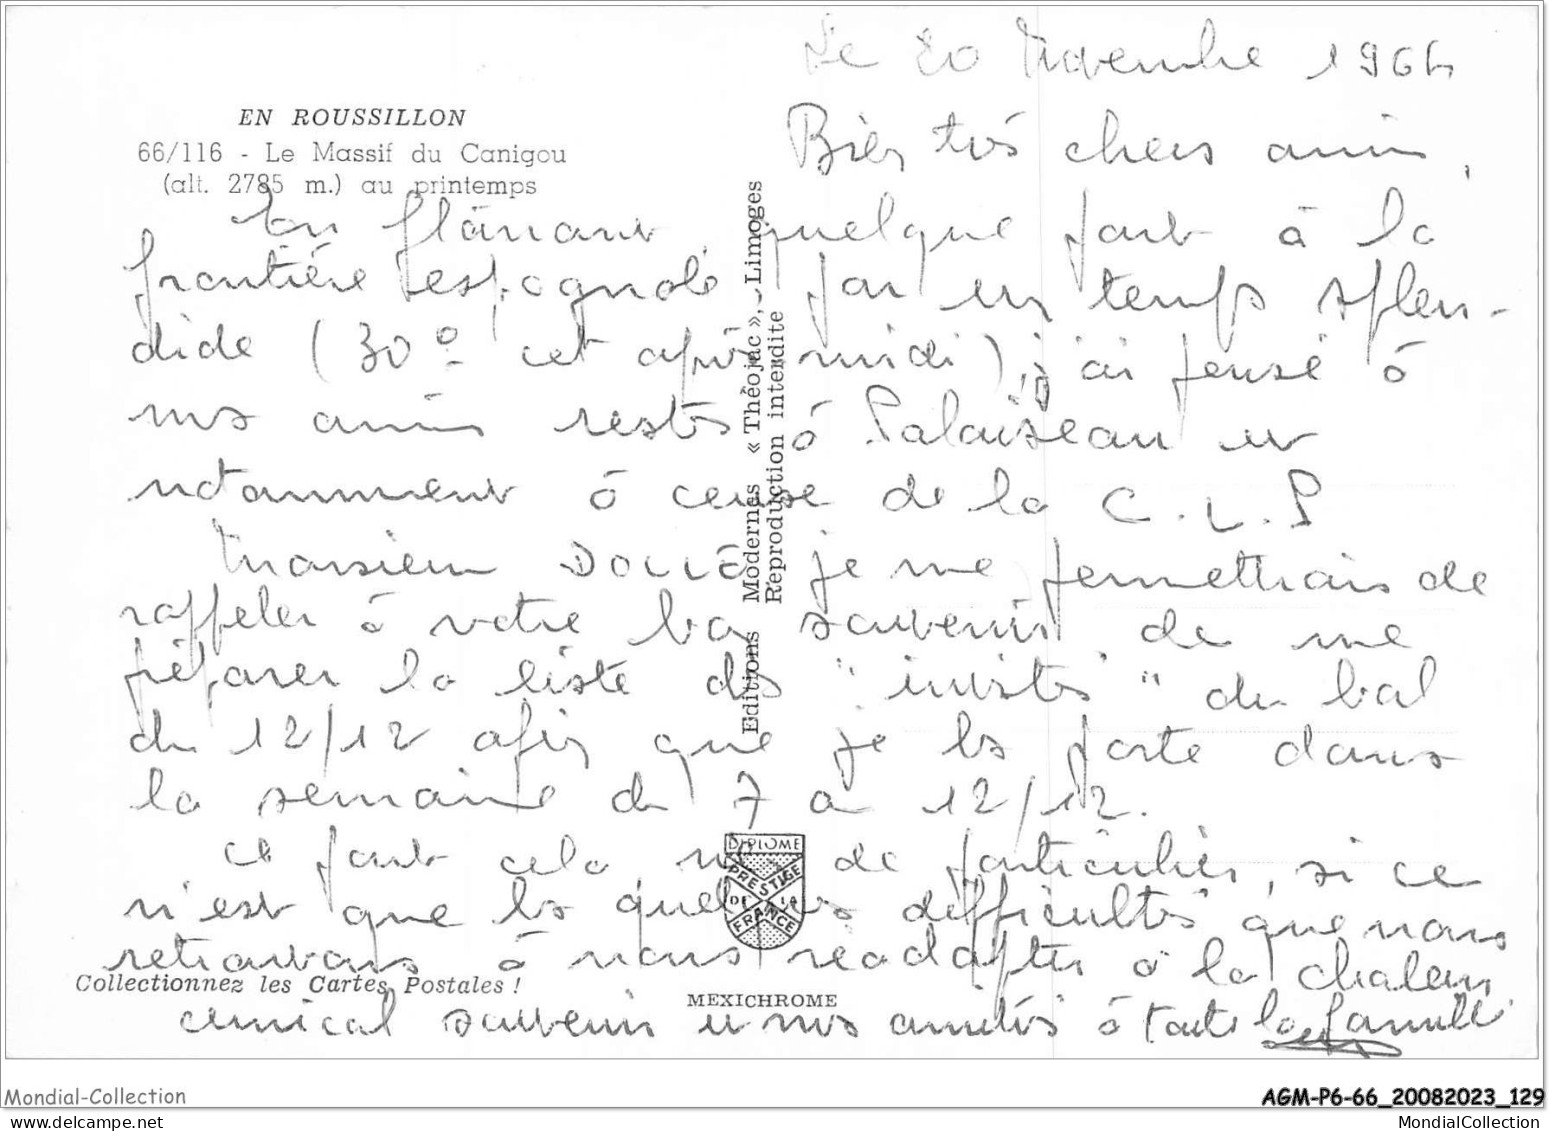 Le 20 Novembre 196
EN ROUSSILLON
66/116 - Le Massif du Canigou
(alt. 2785 m.) au printemps
Bien chers amis,
En flânant, quelque part à la
frontière espagnole par un temps splen-
dide (30° cet après midi), j'ai pensé à
nos amis restés à Palaiseau et
notamment à ceux de la C.L.P
Monsieur je me permettrais de
rappeler à votre bon souvenir de me
préparer la liste des "invités" du bal
du 12/12 afin que je les porte dans
la semaine du 7 a 12/12.
Ce part cela rien de particulier, si ce
n'est que les quelques difficultés que nous
retrouvons à nous réadapter à la chaleur
amical souvenir et nos amitiés à toute la famille
Editions Modernes « Théojac », Limoges
Reproduction interdite
DIPLOME
PRESTIGE
DE LA
FRANCE
Collectionnez les Cartes Postales !
MEXICHROME
Mondial-Collection
AGM-P6-66_20082023_129
MondialCollection